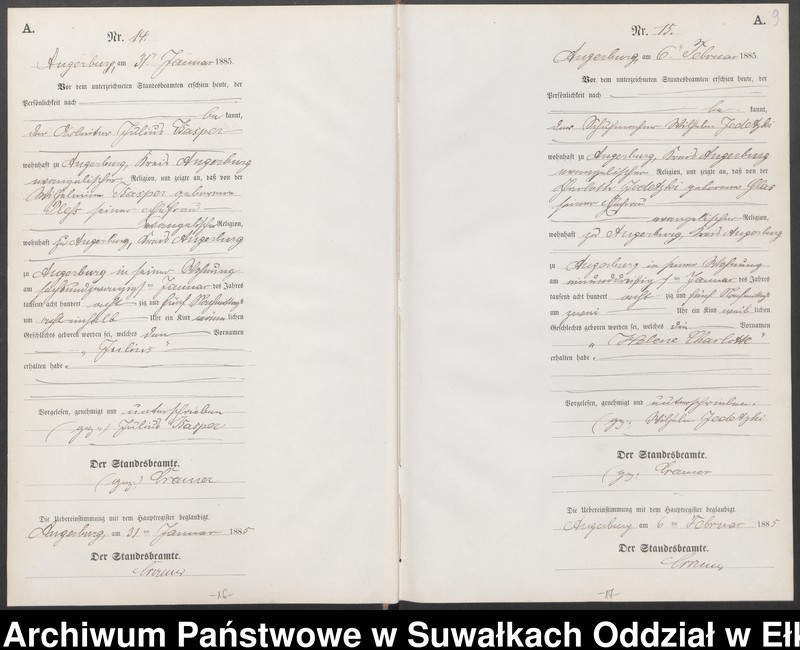 A.
Nr. 14.
Angerburg, am 31ten Januar 1885.
Vor dem unterzeichneten Standesbeamten erschien heute, der
Persönlichkeit nach
be kannt,
der Arbeiter Julius Kasper
wohnhaft zu Angerburg, Kreis Angerburg
evangelischer Religion, und zeigte an, daß von der
Wilhelmine Kasper geborenen
seiner Ehefrau
evangelischer Religion,
wohnhaft zu Angerburg, Kreis Angerburg
zu Angerburg in seiner Wohnung
am sechsundzwanzigsten Januar des Jahres
tausend acht hundert acht zig und fünf Nachmittags
um Uhr ein Kind männlichen
Geschlechts geboren worden sei, welches den Vornamen
„Julius“
erhalten habe.
Vorgelesen, genehmigt und unterschrieben
(gez.) Julius Kasper
Der Standesbeamte.
(gez.) Cramer
Die Uebereinstimmung mit dem Hauptregister beglaubigt.
Angerburg, am 31ten Januar 1885
Der Standesbeamte.
Cramer
-16-
A. 9
Nr. 15.
Angerburg, am 6ten Februar 1885.
Vor dem unterzeichneten Standesbeamten erschien heute, der
Persönlichkeit nach
be kannt,
der Schuhmacher Wilhelm Jedetzki
wohnhaft zu Angerburg, Kreis Angerburg
evangelischer Religion, und zeigte an, daß von der
Jedetzki geborenen
seiner Ehefrau
evangelischer Religion,
wohnhaft zu Angerburg, Kreis Angerburg
zu Angerburg in seiner Wohnung
am einunddreißigsten Januar des Jahres
tausend acht hundert acht zig und fünf Nachmittags
um zwei Uhr ein Kind weiblichen
Geschlechts geboren worden sei, welches die Vornamen
„Helene Charlotte“
erhalten habe.
Vorgelesen, genehmigt und unterschrieben.
(gez. Wilhelm Jedetzki
Der Standesbeamte.
(gez. Cramer
Die Uebereinstimmung mit dem Hauptregister beglaubigt.
Angerburg am 6ten Februar 1885
Der Standesbeamte.
Cramer
-17-
Archiwum Państwowe w Suwałkach Oddział w Ełk